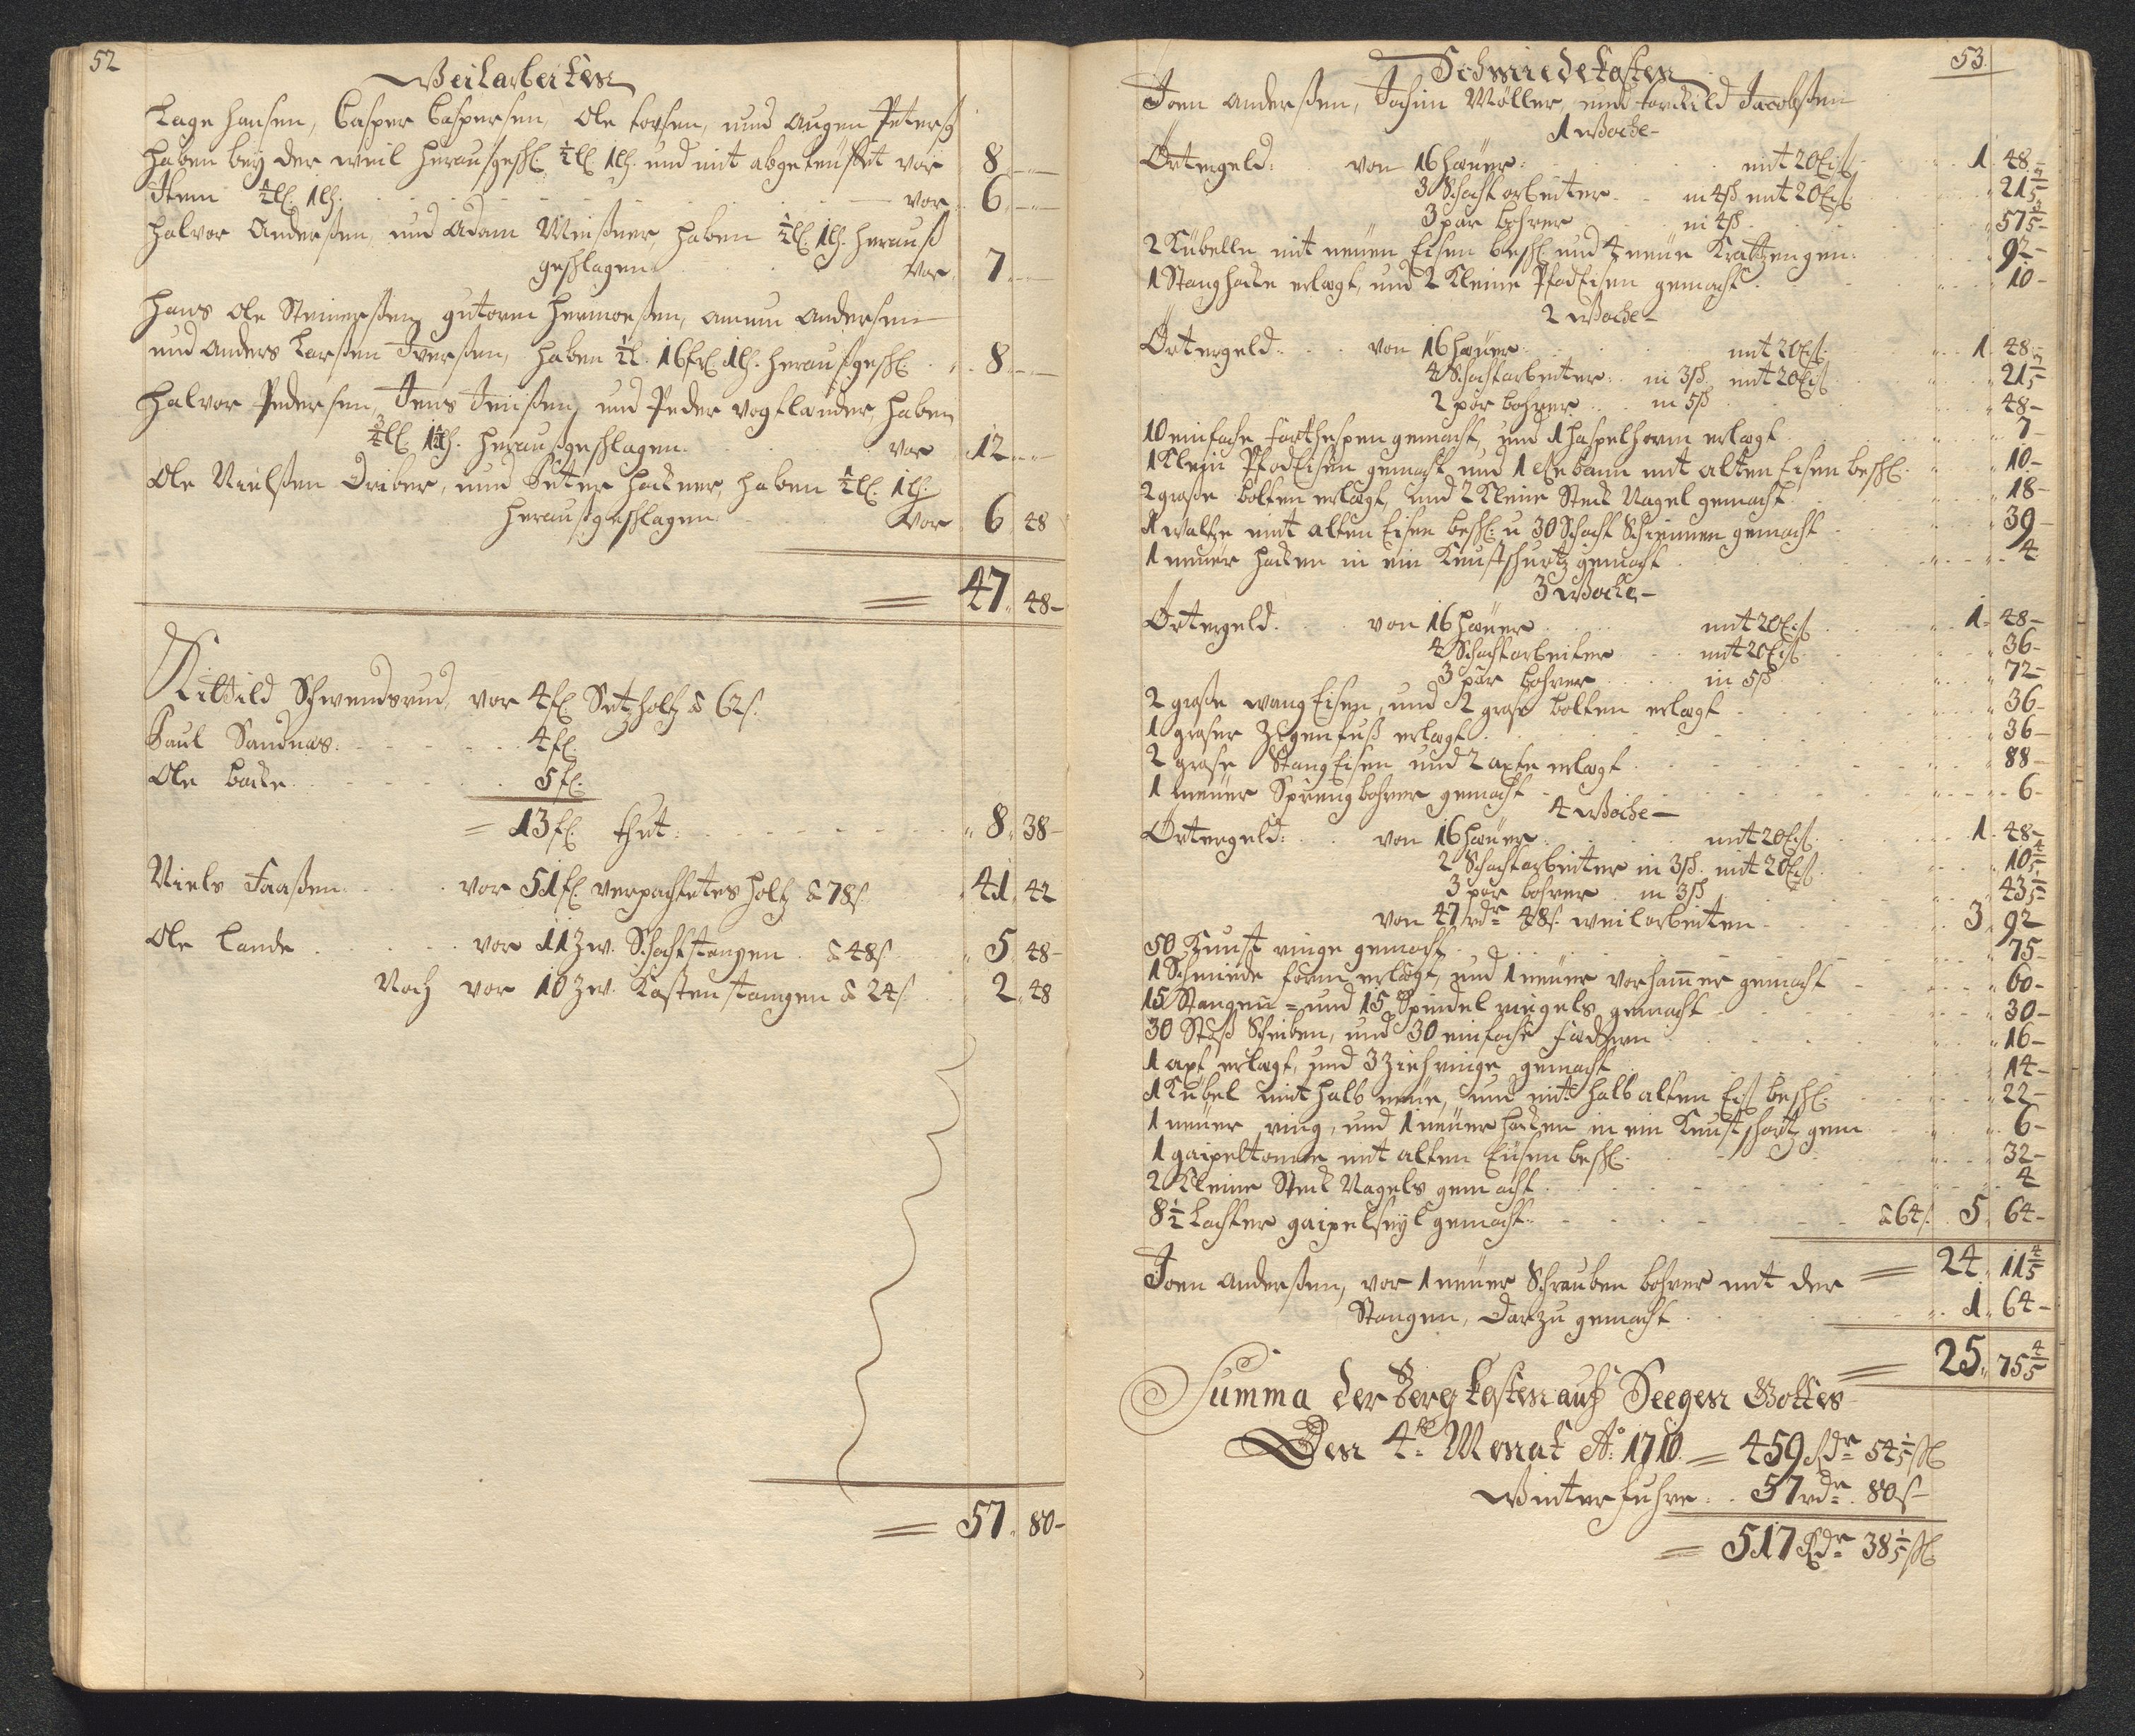 52
Weilarbeiten
Lage Hansen, Casper Caspersen, Ole Forsen, und Augen Peters
haben bey der weil heraußgeschl. ½ll. 1lh. und mit abgeteuffet vor 8
Item ½ll. 1lh. vor 6
Halvor Anderßen, und Adam Meißner, haben ½ll. 1lh. herauß
geschlagen vor 7
Hans Ole Steinerßen, gutorm Hermoeßen, Amum Andersen
und Anders Larßen Iverßen, haben ½l. 16frl 1lh. heraußgeschl. 8
Halvor Pedersen, Jens Jenßen, und Peder Vogtlander, haben
¾ll. 1½lh. heraußgeschlagen vor 12
Ole Nielßen Driber, und Peter Hackner, haben ½ll. 1lh.
heraußgeschlagen vor 6 48
= 47 48-
Kittild Schwendsrud, vor 4fl. Setzholtz à 62ß.
Paul Sandnas. 4fl.
Ole Backe 5fl.
= 13fl. thut. 8 38-
Niels Faaßen vor 51fl. verpachtetes holtz à 78ß 41 42
Ole Lande vor 11 Zw. Schachtstangen à 48ß 5 48-
Noch vor 10 Zw. Kastenstangen à 24ß. 2 48
= 57 80-
53.
Schmiedekosten
Joen Anderßen, Jochim Möller, und Torckild Jacobßen
1 Woche-
Örtergeld: von 16 Haüer mit 20 Eiß 1 48-
3 Schachtarbeiter in 4ß mit 20 Eiß 21 3/5
3 par bohrer in 4ß 57 3/5
2 Kübelln mit neuen Eisen beschl. und 4 neue Kratzengen. 92-
1 Stanghacke erlagt, und 2 Kleine PfadEisen gemacht 10-
2 Woche-
Örtergeld: von 16 Haüer mit 20 Eiß 1 48-
4 Schachtarbeiter in 3ß. mit 20 Eiß 21 3/5
2 par bohrer in 5ß 48-
10 einfache Farthespen gemacht, und 1 haspelhorn erlagt 7-
1 Klein PfadEisen gemacht und 1 Eßebaum mit alten Eisen beschl. 10-
2 große bolten erlagt, und 2 Kleine Steck Nagel gemacht 18-
1 waltze mit alten Eisen beschl: u 30 Schacht Schiennen gemacht 39-
1 neuer Hacken in ein Kunstschurtz gemacht 4
3 Woche-
Örtergeld. von 16 Haüer mit 20 Eiß 1 48-
4 Schachtarbeiter mit 20 Eiß 36-
3 par bohrer in 5ß 72-
2 große wang Eisen, und 2 große bolten erlagt 36-
1 großer Zigenfuß erlagt 36-
2 große StangEisen und 2 axte erlagt 88-
1 neuer Sprengbohrer gemacht 6-
4 Woche-
Örtergeld: von 16 Haüer mit 20 Eiß 1 48-
2 Schachtarbeiter in 3ß. mit 20 Eiß 10 4/5
3 par bohrer in 3ß 43 1/5
von 47 rdr 48ß. weilarbeiten 3 92
50 Kunst ringe gemacht 75-
1 Schmiede form erlagt, und 1 neuer vorham̄er gemacht 60-
15 Stangen= und 15 Spindel ringels gemacht 30-
30 Stoß Scheiben, und 30 einfache fedhern 16-
1 axt erlagt, und 3 Ziehringe gemacht 14-
1 Kübel mit halb neue, und mit halb alten Eiß beschl. 22-
1 neuer ring, und 1 neuer hacken in ein Kunstschortz gem 6-
1 gaipeltonne mit alten Eisen beschl. 32-
2 Kleine Steck Nagels gemacht 4
8½ Lachter gaipelseyl gemacht. à 64ß. 5 64-
= 24 11 4/5
Joen Anderßen, vor 1 neuer Schrauben bohrer mit der
Stangen, darzu gemacht 1 64-
= 25 75 4/5
Summa der Bergkosten auf Seegen Gottes
Den 4ten Monat Ao: 1710. = 459 Rdr 54 1/5 ß
Winterfuhre 57 rdr 80ß
= 517 Rdr 38 1/5 ß